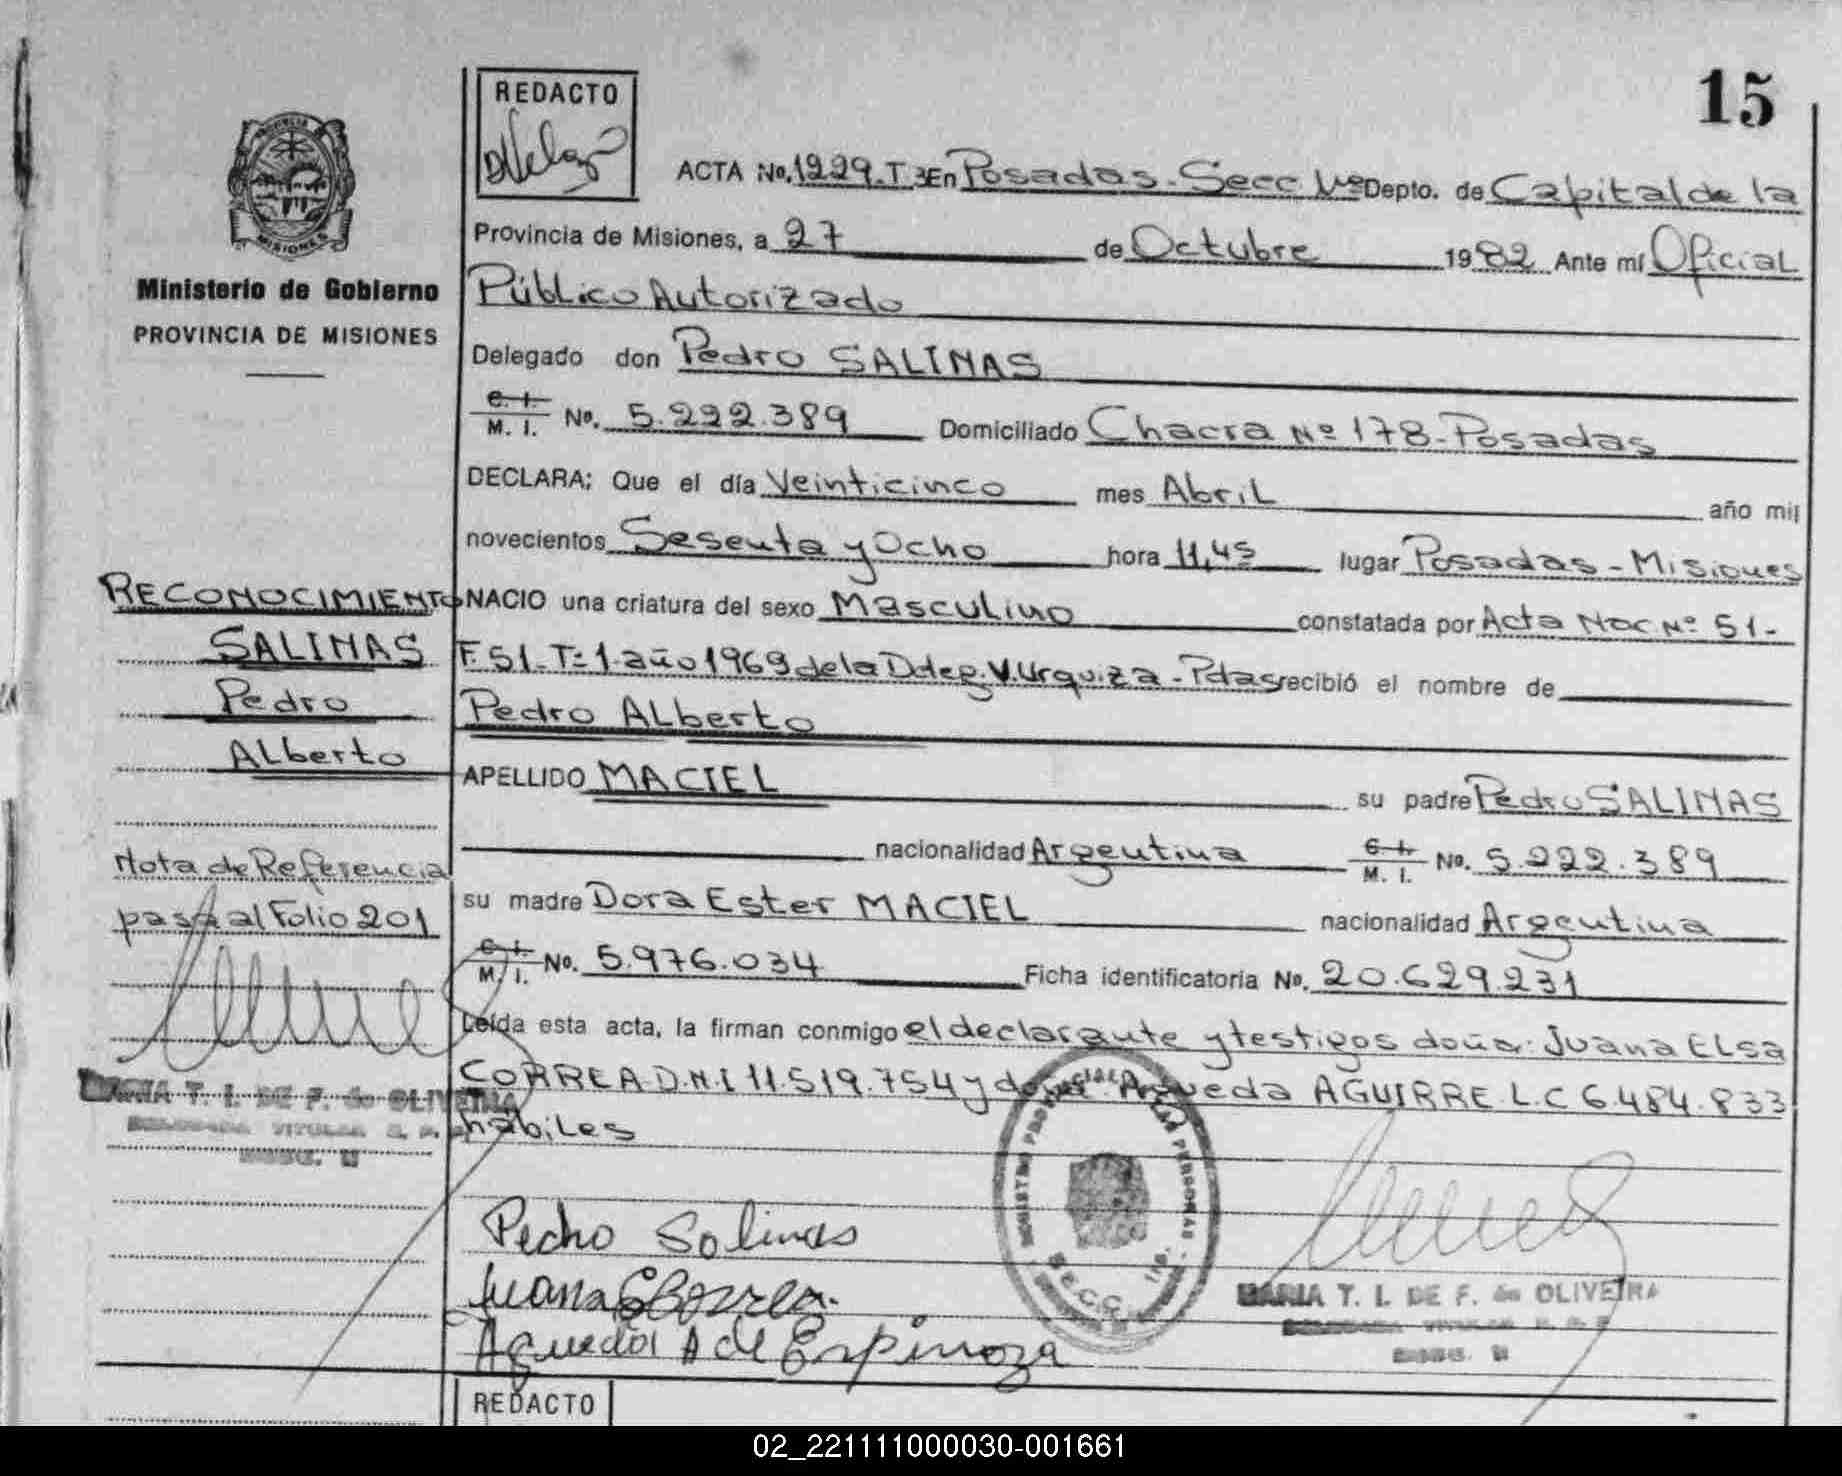 15
REDACTO
ACTA No. 1229. T 3 En Posadas - Secc 1ra Depto. de Capital de la
Provincia de Misiones, a 27 de Octubre 1982 Ante mí Oficial
Público Autorizado
MISIONES
Ministerio de Gobierno
PROVINCIA DE MISIONES
Delegado don Pedro SALINAS
C. I.
M. I. No. 5.222.389 Domiciliado Chacra Nº 178 - Posadas
DECLARA: Que el día Veinticinco mes Abril año mil
novecientos Sesenta y Ocho hora 11,45 lugar Posadas - Misiones
RECONOCIMIENTO
SALINAS
Pedro
Alberto
NACIO una criatura del sexo Masculino constatada por Acta Nac Nº 51-
F. 51. Tº 1. año 1969 de la D.deg. V. Urquiza - Pdas recibió el nombre de
Pedro Alberto
APELLIDO MACIEL su padre Pedro SALINAS
nacionalidad Argentina C. I.
M. I. No. 5.222.389
Nota de Referencia
pasa al Folio 201
su madre Dora Ester MACIEL nacionalidad Argentina
C. I.
M. I. No. 5.976.034 Ficha identificatoria No. 20.629.231
Leída esta acta, la firman conmigo el declarante y testigos doña: Juana Elsa
CORREA D.N.I 11.519.754 y doña: Agueda AGUIRRE L.C 6.484.833
hábiles
MARIA T. I. DE F. de OLIVEIRA
DELEGADA TITULAR
Pedro Salinas
Juana E Correa
Agueda A de Espinoza
REGISTRO PROVINCIAL DE LAS PERSONAS
SECC. 1ra.
MARIA T. I. DE F. de OLIVEIRA
DELEGADA TITULAR
REDACTO
02_221111000030-001661